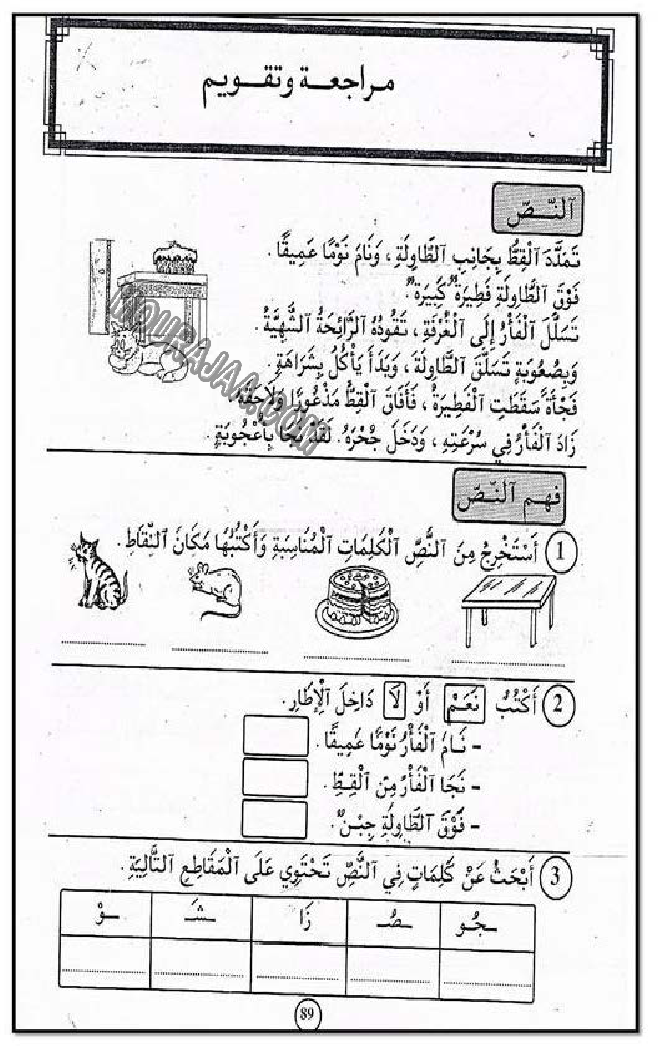 مراجعة وتقويم
اَلنَّصّ
تَمَدَّدَ اَلْقِطُّ بِجَانِبِ اَلطَّاوِلَةِ ، وَنَامَ نَوْمًا عَمِيقًا .
فَوْقَ اَلطَّاوِلَةِ فَطِيرَةٌ كَبِيرَةٌ .
تَسَلَّلَ اَلْفَأْرُ إِلَى اَلْغُرْفَةِ ، تَقُودُهُ اَلرَّائِحَةُ اَلشَّهِيَّةُ .
وَبِصُعُوبَةٍ تَسَلَّقَ اَلطَّاوِلَةَ ، وَبَدَأَ يَأْكُلُ بِشَرَاهَةٍ .
فَجْأَةً سَقَطَتِ اَلْفَطِيرَةُ ، فَأَفَاقَ اَلْقِطُّ مَذْعُورًا وَلَاحَقَهُ
زَادَ اَلْفَأْرُ فِي سُرْعَتِهِ ، وَدَخَلَ جُحْرَهُ . لَقَدْ نَجَا بِأُعْجُوبَةٍ .
MOURAJAA.com
فهم اَلنَّصّ
1 أَسْتَخْرِجُ مِنَ اَلنَّصِّ اَلْكَلِمَاتِ اَلْمُنَاسِبَةِ وَأَكْتُبُهَا مَكَانَ اَلنِّقَاطِ .
2 أَكْتُبُ نَعَمْ أَوْ لَا دَاخِلَ اَلْإِطَارِ .
- نَامَ اَلْفَأْرُ نَوْمًا عَمِيقًا .
- نَجَا اَلْفَأْرُ مِنَ اَلْقِطِّ .
- فَوْقَ اَلطَّاوِلَةِ جِبْنٌ .
3 أَبْحَثُ عَنْ كَلِمَاتٍ فِي اَلنَّصِّ تَحْتَوِي عَلَى اَلْمَقَاطِعِ اَلتَّالِيَةِ .
ـجُو صُـ زَا ـشَـ ـوْ
89